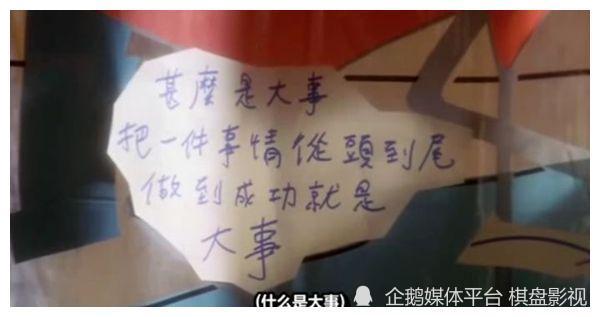 甚麼是大事
把一件事情從頭到尾
做到成功就是
大事
(什么是大事)
企鹅媒体平台 棋盘影视